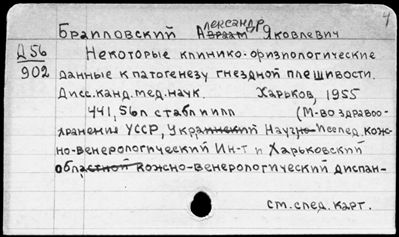 4
Браиловский Александр Яковлевич
Д56
902
Некоторые клинико-физиологические
данные к патогенезу гнездной плешивости.
Дисс. канд. мед. наук. Харьков, 1955
441, 56л стабл и илл (М-во здравоо-
хранения УССР, Украинский Научно-Исслед. кож-
но-венерологический Ин-т и Харьковский
областной кожно-венерологический диспан-
см. след. карт.